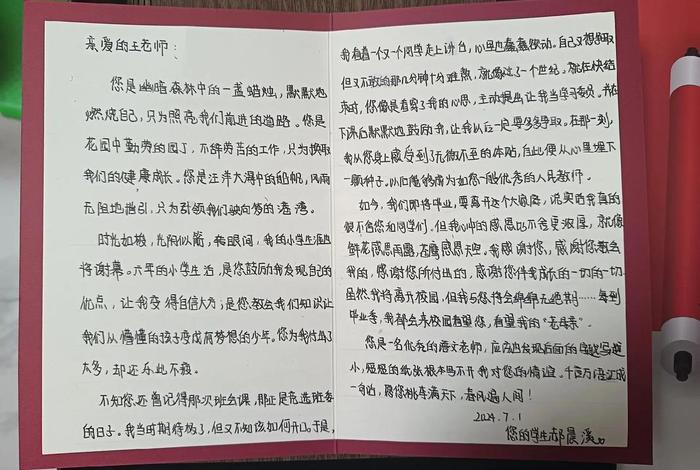 亲爱的王老师：
您是幽暗森林中的一盏蜡烛，默默地
燃烧自己，只为照亮我们前进的道路。您是
花园中勤劳的园丁，不辞劳苦的工作，只为换取
我们的健康成长。您是汪洋大海中的船帆，风雨
无阻地指引，只为引领我们驶向梦的港湾。
时光如梭，光阴似箭，转眼间，我的小学生涯也
将谢幕。六年的小学生活，是您鼓励我发现自己的
优点，让我变得自信大方；是您教会我们知识让
我们从懵懂的孩子变成有梦想的少年。您为我付出了
太多，却还乐此不疲。
不知您还曾记得那次班会课，那正是竞选班委
的日子。我当时期待极了，但又不知该如何开口。于是，
我看着一个又一个同学走上讲台，心里也蠢蠢欲动。自己又想争取
但又不敢的那几分钟十分难熬，就像过了一个世纪。就在快结
束时，您像是看穿了我的心思，主动提出让我当学习委员。并在
下课后默默地鼓励我，让我以后一定要多多争取。在那一刻，
我从您身上感受到了无微不至的体贴，自此便从心里埋下
一颗种子。以后能够成为如您一般优秀的人民教师。
如今，我们即将毕业，要离开这个大家庭，说实话我真的
很不舍您和同学们。但我心中的感恩比不舍更浓厚，就像
鲜花感恩雨露，苍鹰感恩天空。我感谢您，感谢您教会
我的，感谢您所付出的，感谢您伴我成长的一切的一切
虽然我将离开校园，但我与您将会绵绵无绝期……每到
毕业季，我都会来校园看望您，看望我的“老母亲”。
您是一名优秀的语文老师，应该也发现后面的字越写越
小，短短的纸张根本写不开我对您的情谊。千言万语汇成
一句话，愿您桃李满天下，春风遍人间！
2024.7.1
您的学生郝晨溪